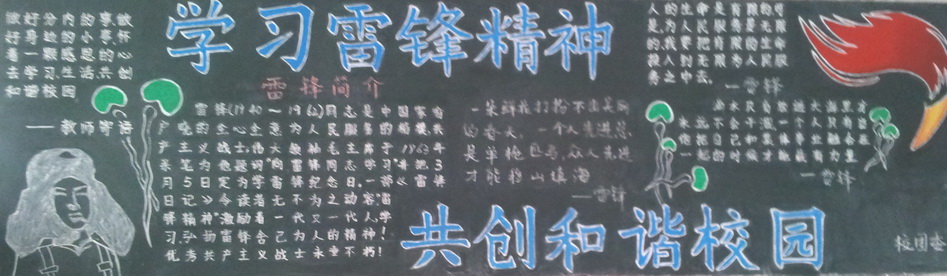 学习雷锋精神
做好分内的事,做
好身边的小事,怀
着一颗感恩的心
去学习、生活,共创
和谐校园
——教师寄语
雷锋简介
雷锋(1940—1962)同志是中国家喻
户晓的全心全意为人民服务的楷模,共
产主义战士,伟大领袖毛主席于1963年
亲笔为他题词"向雷锋同志学习"并把3
月5日定为学雷锋纪念日,一部《雷锋
日记》令读者无不为之动容"雷
锋精神"激励着一代又一代人学
习,弘扬雷锋舍己为人的精神!
优秀共产主义战士永垂不朽!
一朵鲜花打扮不出美丽
的春天,一个人先进总
是单枪匹马,众人先进
才能移山填海
——雷锋
人的生命是有限的,可
是,为人民服务是无限
的,我要把有限的生命,
投入到无限的为人民服
务之中去。
——雷锋
一滴水只有放进大海里才
永远不会干涸,一个人只有当
他把自己和集体事业融合在
一起的时候才能最有力量
——雷锋
共创和谐校园
校园